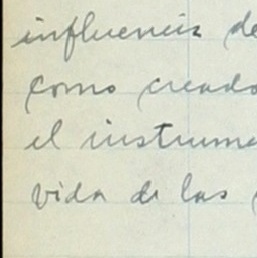 influencia de
como creado
el instrume
vida de las